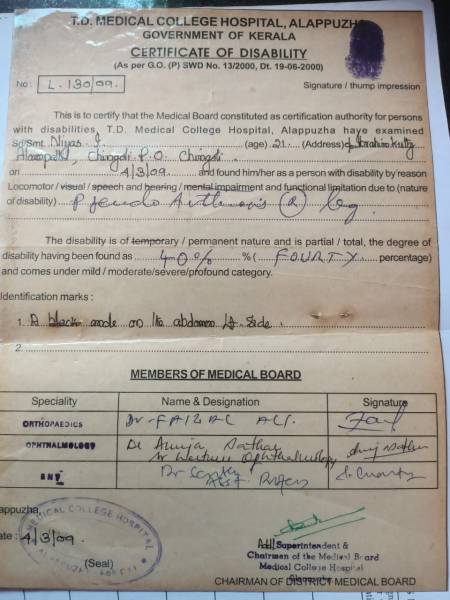 T.D. MEDICAL COLLEGE HOSPITAL, ALAPPUZHA
GOVERNMENT OF KERALA
CERTIFICATE OF DISABILITY
(As per G.O. (P) SWD No. 13/2000, Dt. 19-06-2000)
No : L.130/09.
Signature / thump impression
This is to certify that the Medical Board constituted as certification authority for persons
with disabilities, T.D. Medical College Hospital, Alappuzha have examined
Sri/Smt. Niyas. (age) 21. (Address)
Chingoli P.O. Chingoli.
on 4/3/09. and found him/her as a person with disability by reason
Locomotor / visual / speech and hearing / mental impairment and functional limitation due to (nature
of disability) Pseudo Arthrosis (R) leg
The disability is of temporary / permanent nature and is partial / total, the degree of
disability having been found as 40% % ( FOURTY percentage)
and comes under mild / moderate/severe/profound category.
Identification marks :
1. A black mole on the abdomen Lt. Side.
2.
MEMBERS OF MEDICAL BOARD
Speciality Name & Designation Signature
ORTHOPAEDICS Dr FAIZAL ALI.
OPHTHALMOLOGY Dr Sathar
Ophthalmology
ENT Dr
Alappuzha,
Date : 4/3/09.
MEDICAL COLLEGE HOSPITAL
(Seal)
Superintendent &
Chairman of the Medical Board
Medical College Hospital
Alappuzha
CHAIRMAN OF DISTRICT MEDICAL BOARD